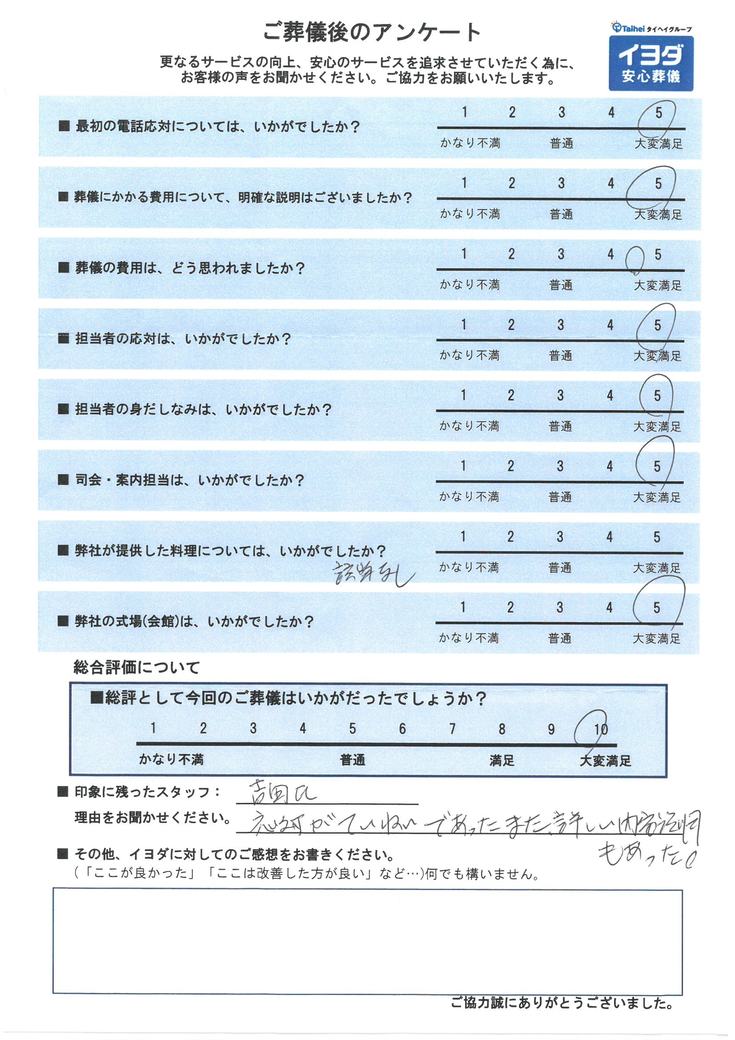 ご葬儀後のアンケート
Taihei タイヘイグループ
イヨダ
安心葬儀
更なるサービスの向上、安心のサービスを追求させていただく為に、
お客様の声をお聞かせください。ご協力をお願いいたします。
■ 最初の電話応対については、いかがでしたか？
1 2 3 4 5
かなり不満 普通 大変満足
■ 葬儀にかかる費用について、明確な説明はございましたか？
1 2 3 4 5
かなり不満 普通 大変満足
■ 葬儀の費用は、どう思われましたか？
1 2 3 4 5
かなり不満 普通 大変満足
■ 担当者の応対は、いかがでしたか？
1 2 3 4 5
かなり不満 普通 大変満足
■ 担当者の身だしなみは、いかがでしたか？
1 2 3 4 5
かなり不満 普通 大変満足
■ 司会・案内担当は、いかがでしたか？
1 2 3 4 5
かなり不満 普通 大変満足
■ 弊社が提供した料理については、いかがでしたか？
該当なし
1 2 3 4 5
かなり不満 普通 大変満足
■ 弊社の式場(会館)は、いかがでしたか？
1 2 3 4 5
かなり不満 普通 大変満足
総合評価について
■総評として今回のご葬儀はいかがだったでしょうか？
1 2 3 4 5 6 7 8 9 10
かなり不満 普通 満足 大変満足
■ 印象に残ったスタッフ： 吉田氏
理由をお聞かせください。 応対がていねいであったまた、詳しい内容説明
もあった。
■ その他、イヨダに対してのご感想をお書きください。
（「ここが良かった」「ここは改善した方が良い」など…)何でも構いません。
ご協力誠にありがとうございました。